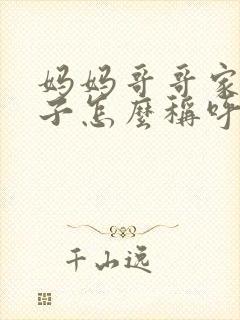 妈妈哥哥家
子怎麼稱呼
千山远